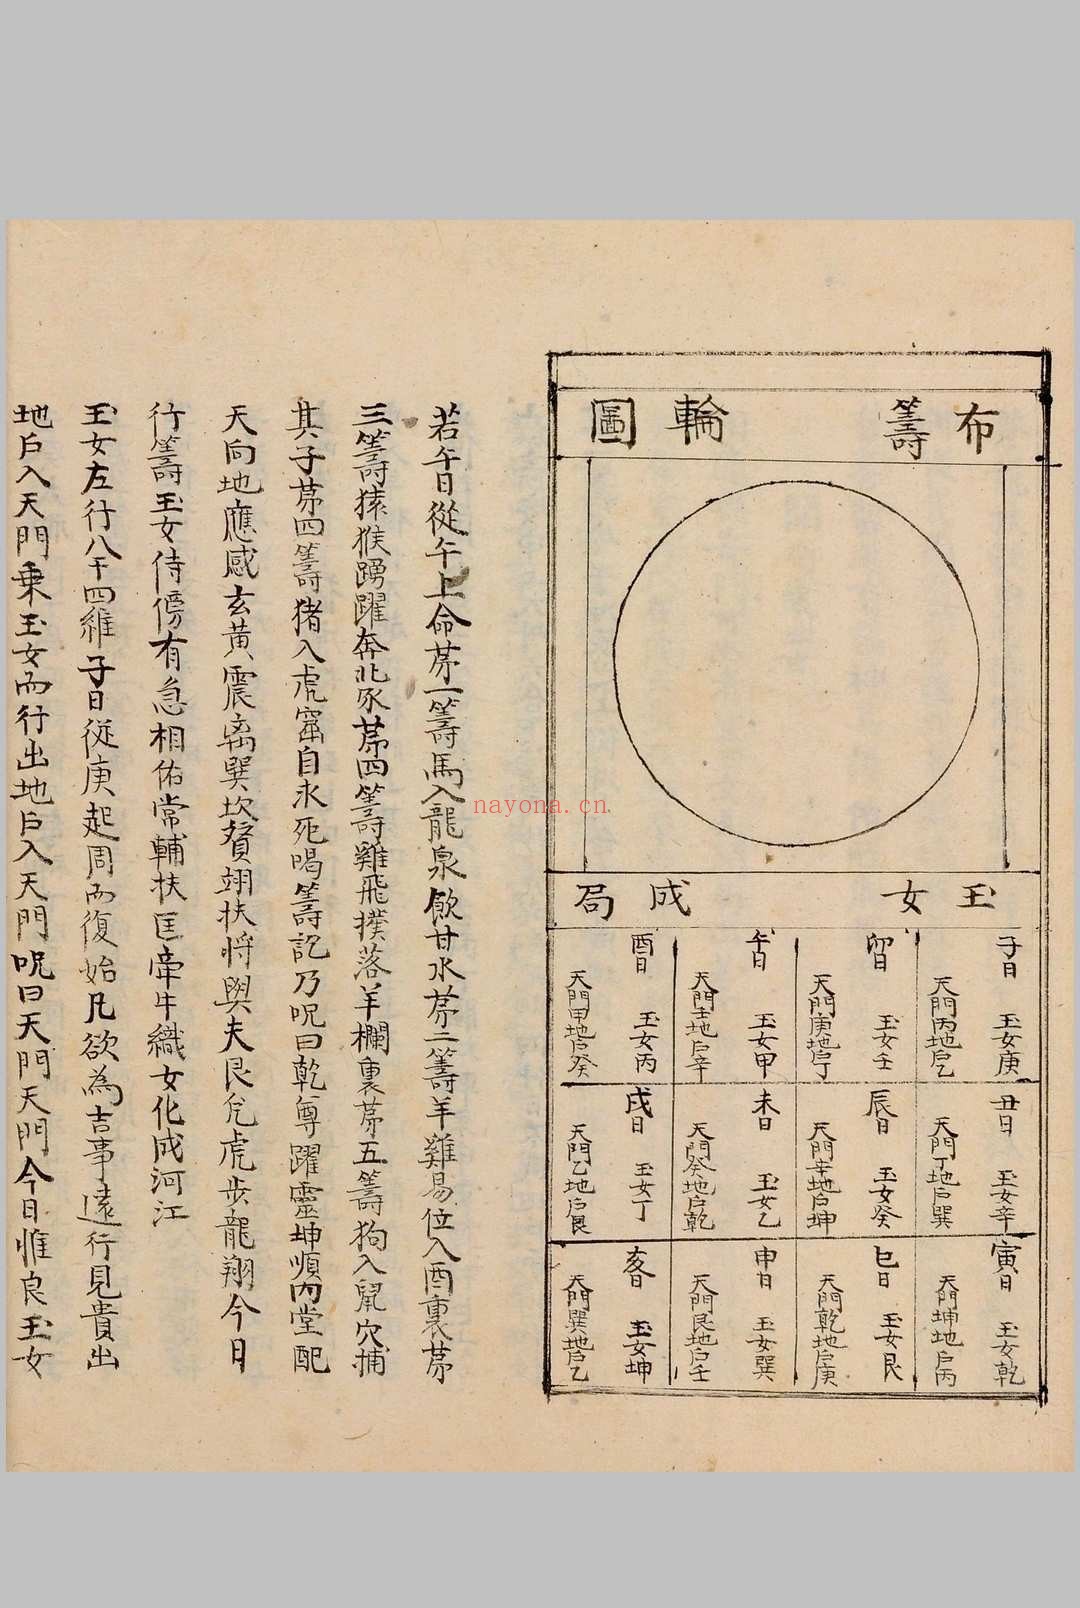 布籌輪圖
玉女成局
子日 玉女庚
天門丙地户乙
丑日 玉女辛
天門丁地户巽
寅日 玉女乾
天門坤地户丙
卯日 玉女壬
天門庚地户丁
辰日 玉女癸
天門辛地户坤
巳日 玉女艮
天門乾地户庚
午日 玉女甲
天門壬地户辛
未日 玉女乙
天門癸地户乾
申日 玉女巽
天門艮地户壬
酉日 玉女丙
天門甲地户癸
戌日 玉女丁
天門乙地户艮
亥日 玉女坤
天門巽地户乙
若午日從午上命苐一籌馬入龍泉飲甘水苐二籌羊雞易位入酉裏苐
三籌猿猴踴躍奔北豕苐四籌雞飛撲落羊欄裏苐五籌狗入鼠穴捕
其子苐四籌猪入虎窟自求死喝籌記乃呪曰乾尊躍靈坤順內堂配
天向地應感玄黄震离巽坎贇翊扶將與夫艮兌虎步龍翔今日
行籌玉女侍傍有急相佑常輔扶匡牽牛織女化成河江
玉女左行八干四維子日從庚起周而復始凡欲為吉事遠行見貴出
地户入天門乘玉女而行出地户入天門呪曰天門天門今日惟良玉女
nayona.cn